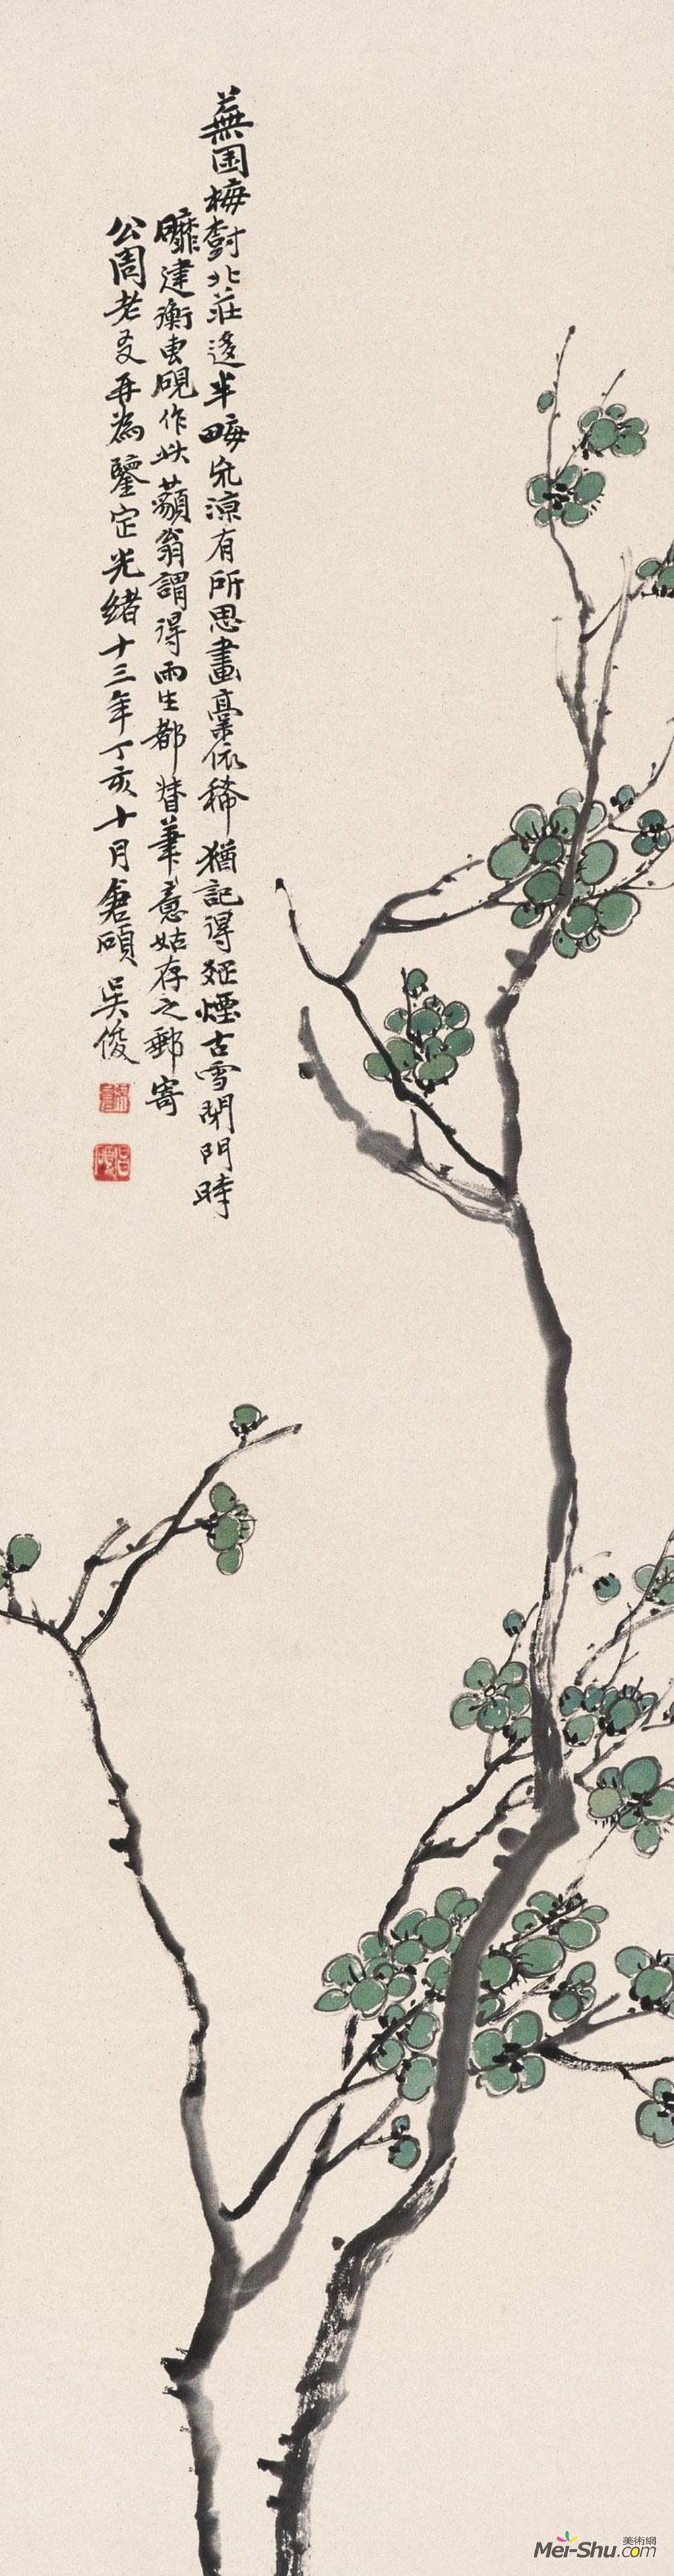 蕪園梅樹北莊遙半畮荒涼有所思畫稾依稀猶記得㷼煙古雪閉門時
曬建衡専硯作此蘋翁謂得雨生都督筆意姑存之郵寄
公周老友再為鑒定光緒十三年丁亥十月倉碩吳俊
美術網
Mei-Shu.com